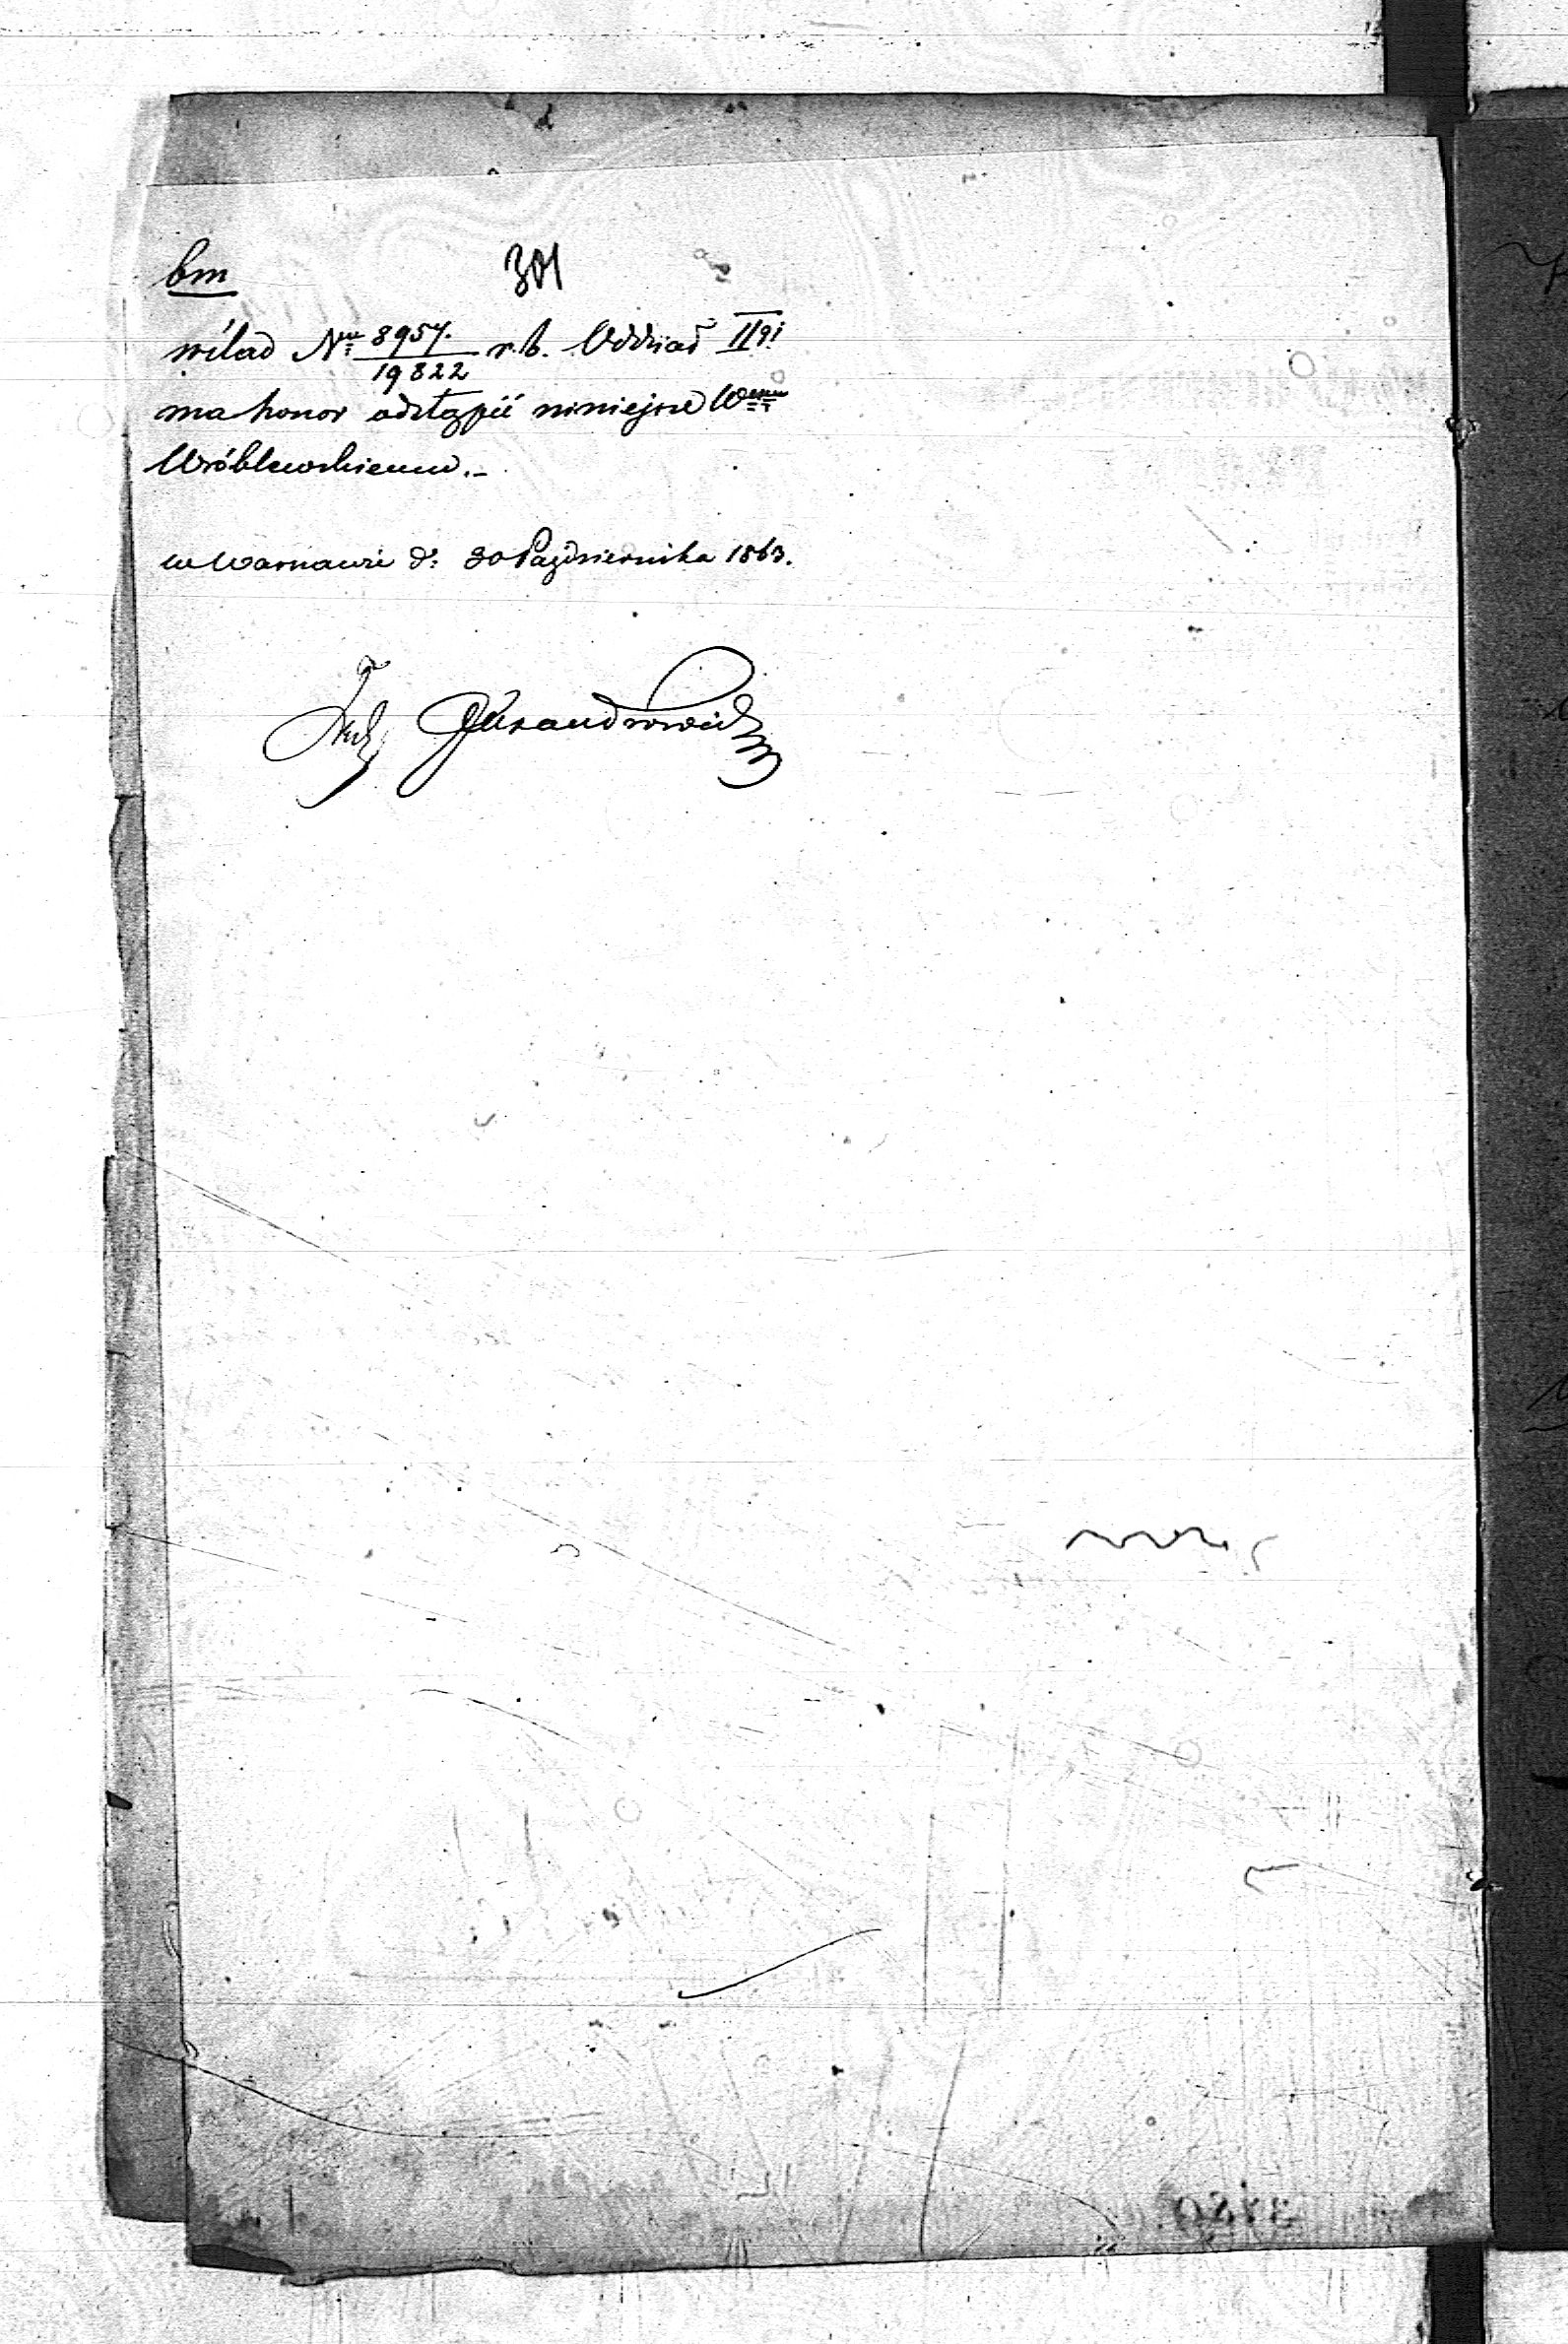 bm 301
wślad Nru 8957./19822 r.b. Oddział IIgi
ma honor odstąpić niniejsze Wemu
Wróblewskiemu.-
w Warszawie d: 30 Października 1863.
Alexandrowicz